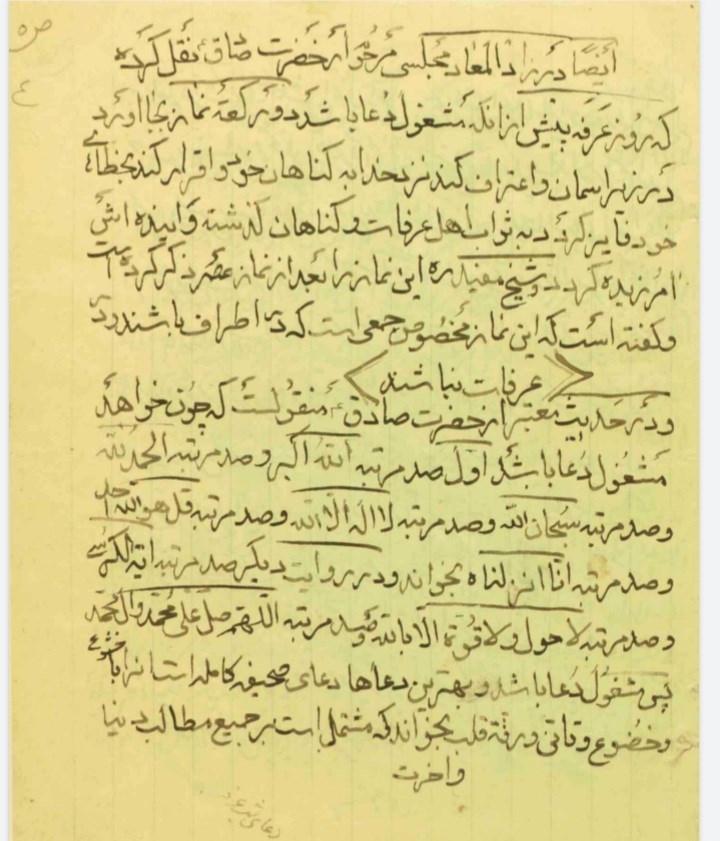 ص ٥
٤
أیضًا در زاد المعاد مجلسی مرحوم از حضرت صادق ع نقل کرده
که روز عرفه پیش از آنکه مشغول دعا باشد دو رکعة نماز بجا آورد
در زیر اسمان و اعتراف کند نزد خدا به کناهان خود و اقرار کند بخطاهای
خود فایز کردد به ثواب اهل عرفات و کناهان کذشته و آینده اش
امرزیده کردد و شیخ مفید ره این نماز را بعد از نماز عصر ذکر کرده است
و کفته است که این نماز مخصوص جمعی است که در اطراف باشند و در
عرفات نباشند
و در حدیث معتبر از حضرت صادق ع منقولست که چون خواهد
مشغول دعا باشد اول صد مرتبه الله اکبر و صد مرتبه الحمد لله
و صد مرتبه سبحان الله و صد مرتبه لا اله الا الله و صد مرتبه قل هو الله احد
و صد مرتبه انا انزلناه بخواند و در روایت دیکر صد مرتبه ایة الکرسی
و صد مرتبه لا حول ولا قوة الا بالله و صد مرتبه اللهم صل علی محمد و ال محمد
پس مشغول دعا باشد و بهترین دعاها دعای صحیفه کامله است انرا با خشوع
و خضوع و تانی و رقة قلب بخواند که مشتمل است بر جمیع مطالب دنیا
و اخرت
دعای